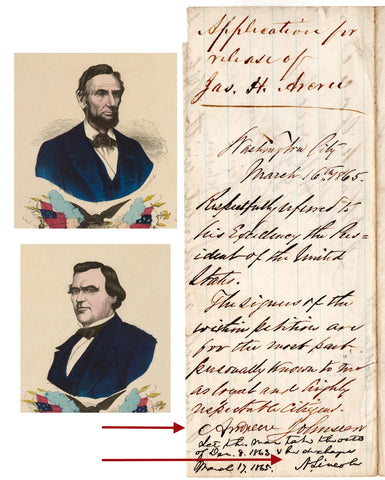 Application for
release of
Jas. H. Arcree
Washington City
March 16th, 1865.
Respectfully referred to
his Excellency the Pres=
ident of the United
States.
The signers of the
within petition are
for the most part
personally known to me
as loyal and highly
respectable citizens.
Andrew Johnson
Let this man take the oath
of Dec. 8. 1863 & be discharged
March 17, 1865. A. Lincoln